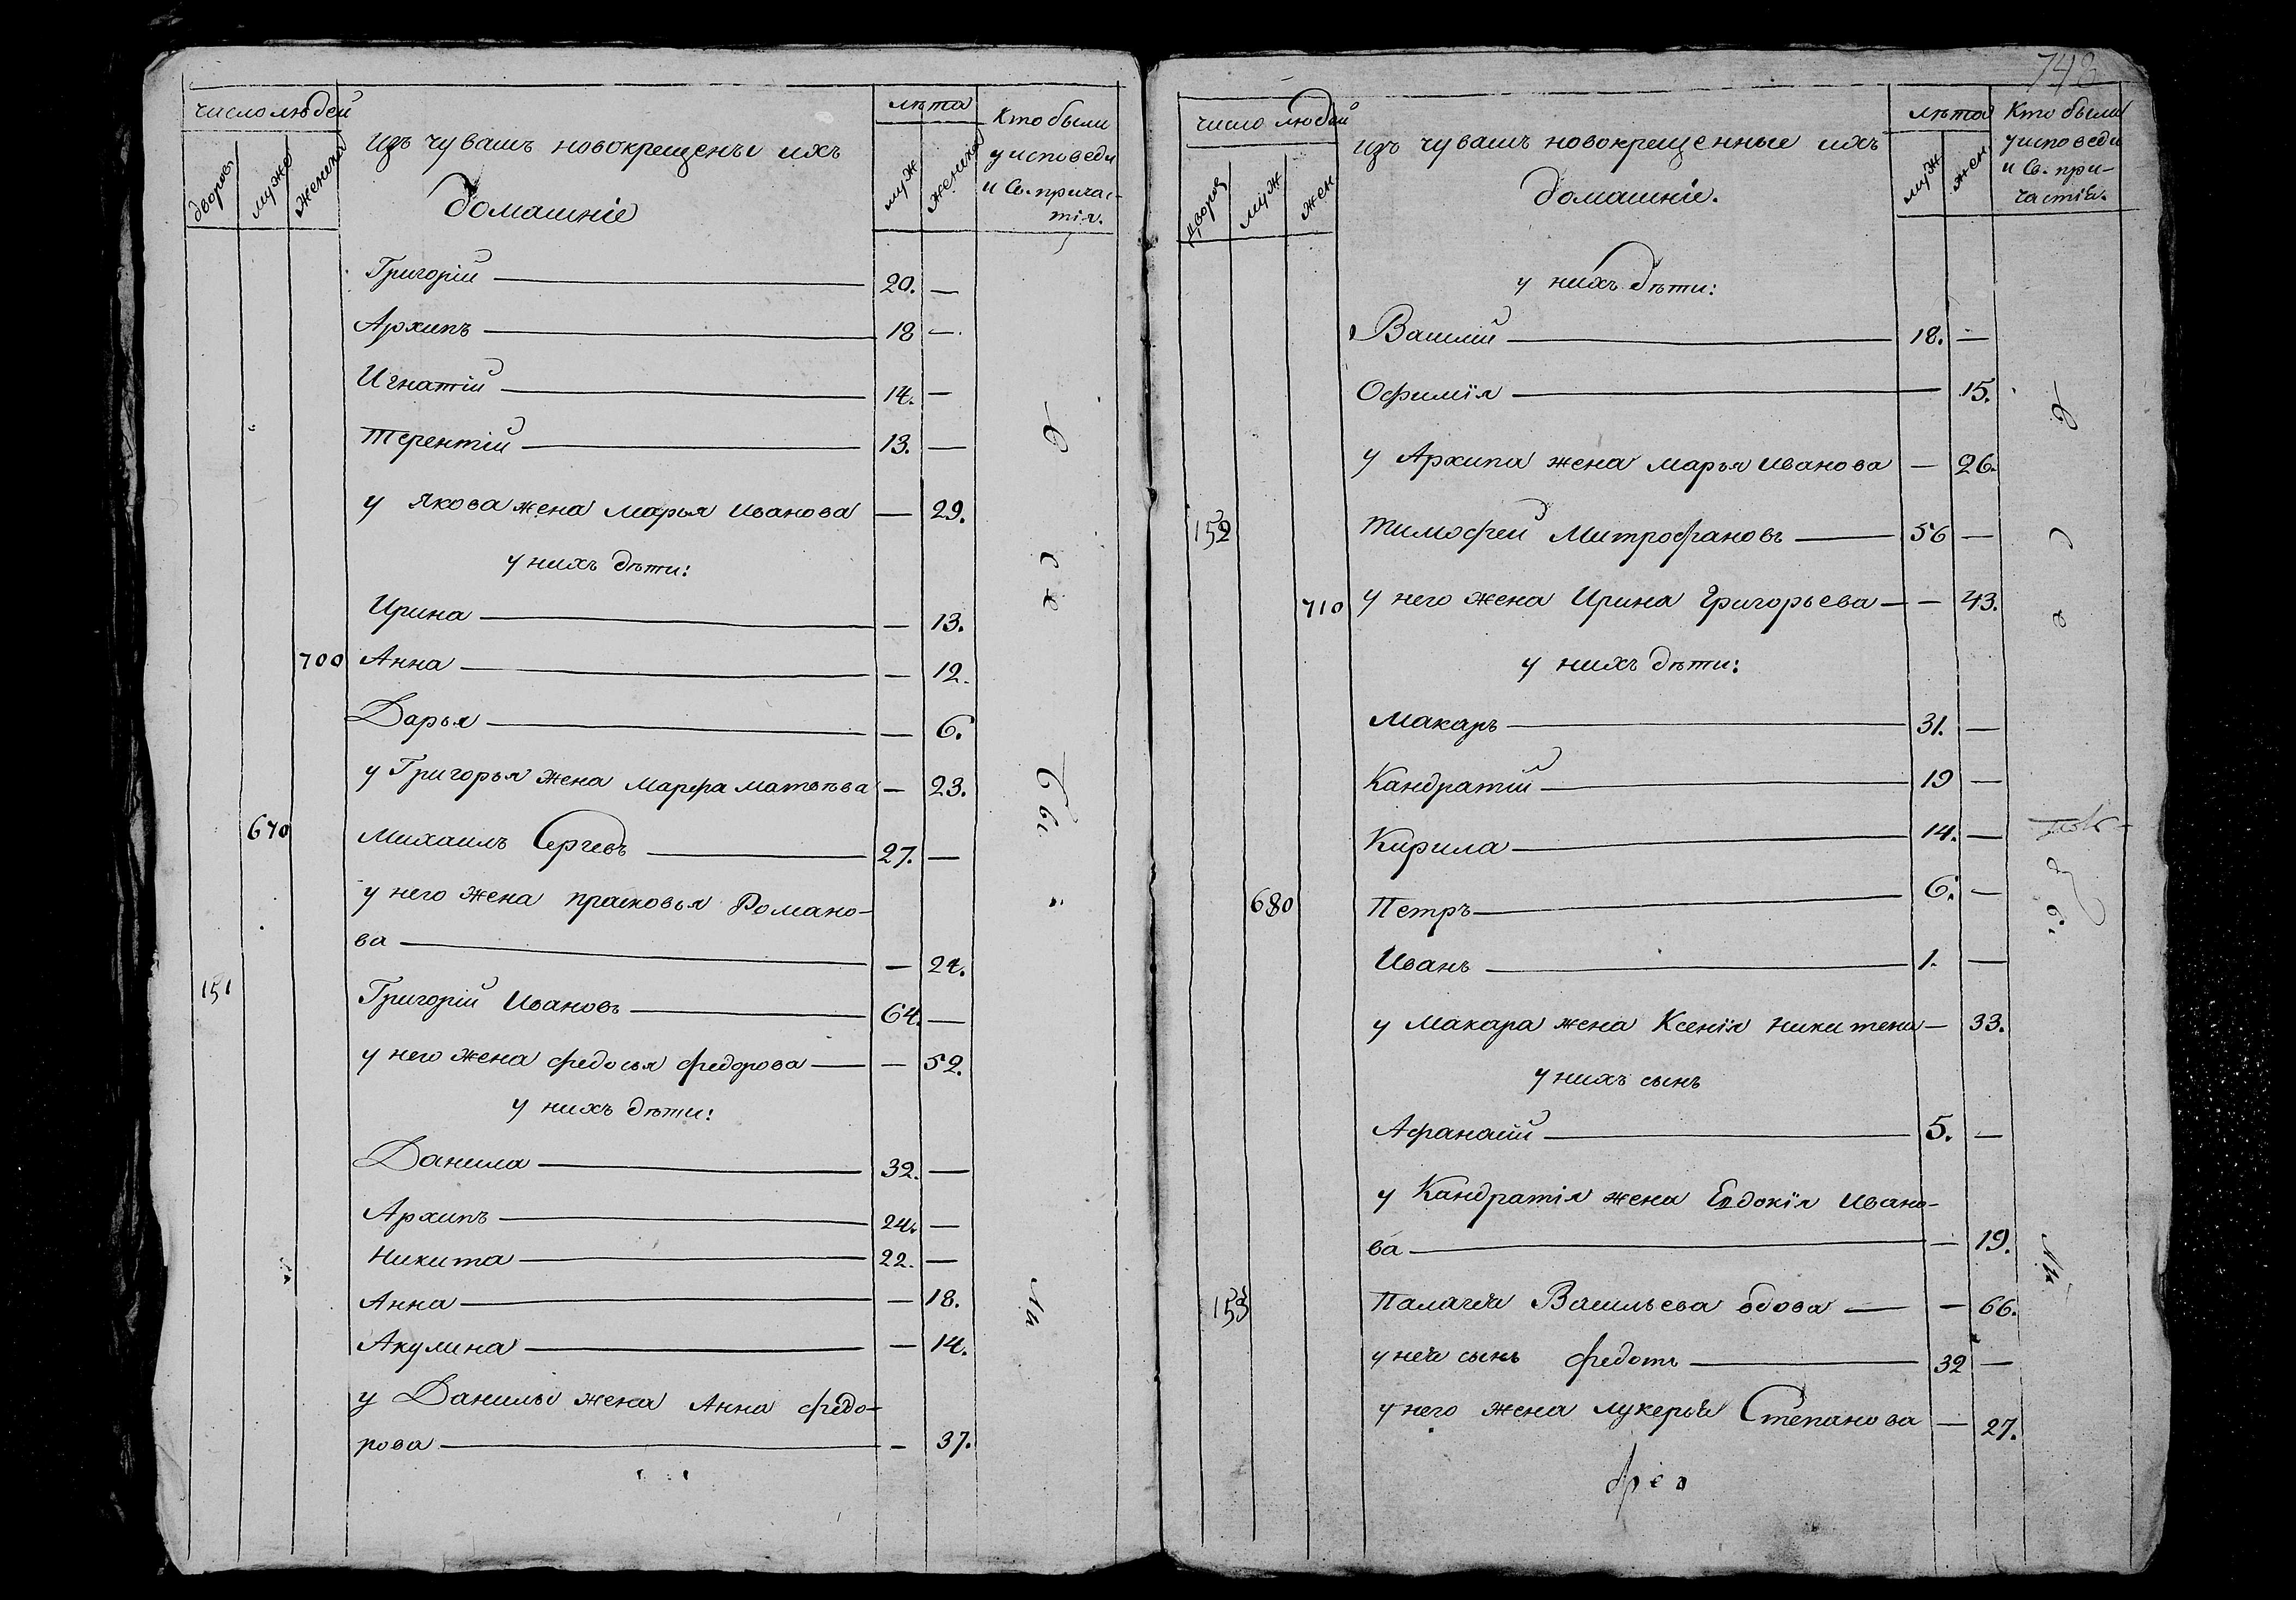 число людей
дворовъ
мужеска
женска
изъ чувашъ новокрещены ихъ
домашніе
лѣта
муж
женска
Кто были
у исповеди
и Св. причас-
тія.
Григорій — 20. —
Архипъ — 18 —
Игнатій — 14. —
Терентій — 13. —
у Якова жена Марья Иванова — 29.
у нихъ дѣти:
Ирина — 13.
700 Анна — 12.
Дарья — 6.
у Григорья жена Марфа Матвѣва — 23.
670 Михаилъ Сергеевъ — 27. —
у него жена прасковья Романо-
ва — 24.
151 Григорій Ивановъ — 64. —
у него жена федосья федорова — 52.
у нихъ дѣти:
Данила — 32. —
Архипъ — 24. —
Никита — 22. —
Анна — 18.
Акулина — 14.
у Данилы жена Анна федо-
рова — 37.
748
число людей
дворов
муж
жен
изъ чувашъ новокрещенные ихъ
домашніе.
лѣта
муж
жен
Кто были
у исповеди
и Св. при-
частія.
у нихъ дѣти:
Василій — 18. —
Офимія — 15.
у Архипа жена Марья Иванова — 26.
152 Тимофей Митрофановъ — 56 —
710 у него жена Ирина Григорьева — 43.
у нихъ дѣти:
Макаръ — 31. —
Кандратій — 19 —
Кирила — 14. —
680 Петръ — 6. —
Иванъ — 1. —
у Макара жена Ксенія Никитена — 33.
у нихъ сынъ
Афанасій — 5. —
у Кандратія жена Евдокія Ивано-
ва — 19.
153 Палагея Васильева вдова — 66.
у нея сынъ федотъ — 32 —
у него жена лукерья Степанова — 27.